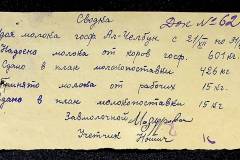 Сводка
Док № 62
молока госф. Ал-Челбук с 21/VII по 31/
Надоено молока от коров госф. 601 кг
Сдано в план молокопоставки 426 кг
молока от рабочих 15 кг.
в план молокопоставки 15 кг.
Завмолочной
Учетчик